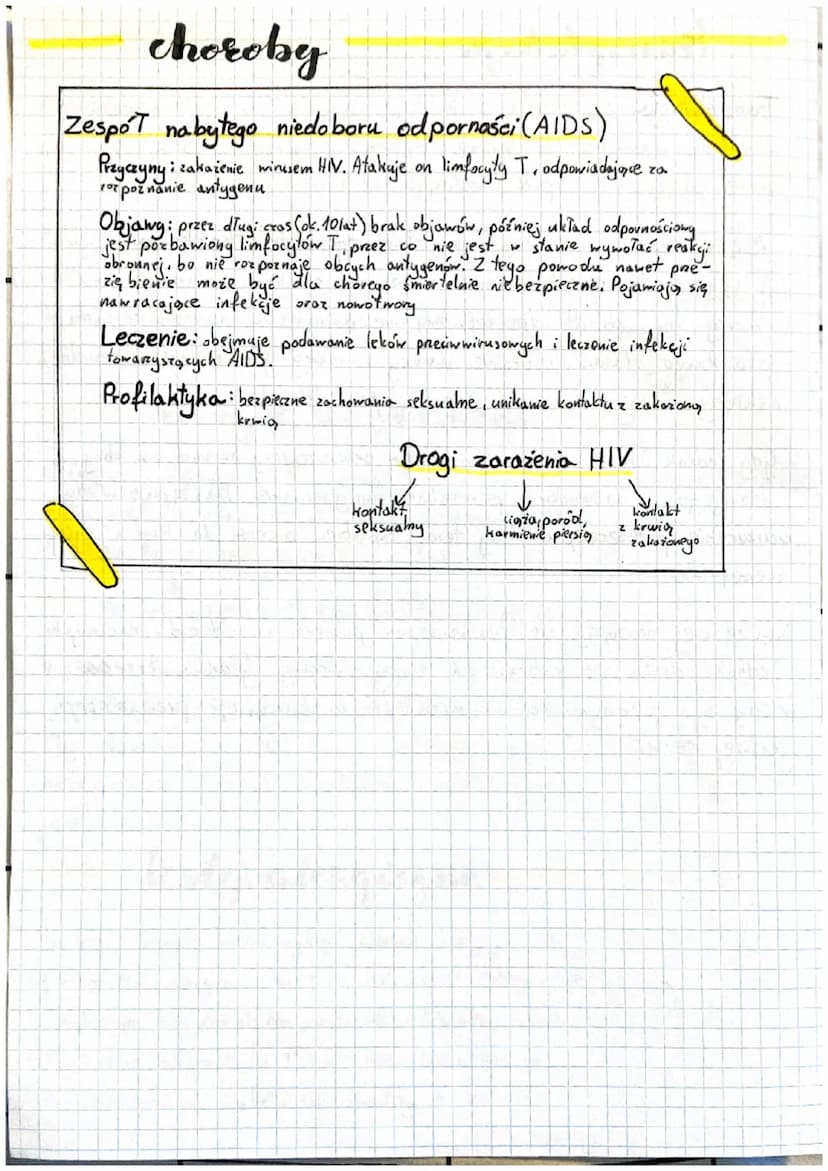 choroby
Zespół nabytego niedoboru odporności (AIDS)
Przyczyny: zakażenie wirusem HIV. Atakuje on limfocyty T, odpowiadające za
rozpoznanie antygenu
Objawy: przez długi czas (ok. 10 lat) brak objawów, później układ odpornościowy
jest pozbawiony limfocytów T, przez co nie jest w stanie wywołać reakcji
obronnej, bo nie rozpoznaje obcych antygenów. Z tego powodu nawet prze-
zię bienie może być dla chorego śmiertelnie niebezpieczne. Pojawiają się
nawracające infekcje oraz nowotwory
Leczenie: obejmuje podawanie leków przeciwwirusowych i leczenie infekcji
towarzyszących AIDS.
Profilaktyka: bezpieczne zachowania seksualne, unikanie kontaktu z zakażoną
krwią
Drogi zarażenia HIV
kontakt
seksualny
ciąża, poród,
karmienie piersią
kontakt
z krwią
zakażonego